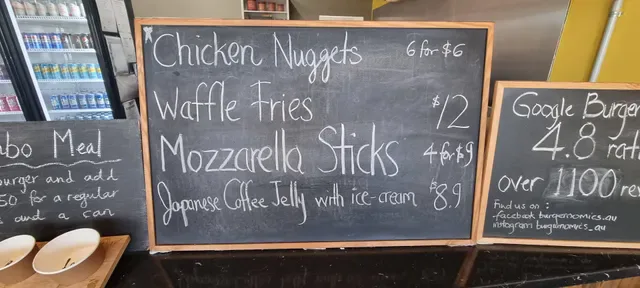 Chicken Nuggets 6 for $6
Waffle Fries $12
Mozzarella Sticks 4 for $9
Japanese Coffee Jelly with ice-cream $8.9
Meal
burger and add
50 for a regular
and a can
Google Burger
4.8
over 1100
Find us on :
-facebook burgernomics_au
instagram burgernomics_au